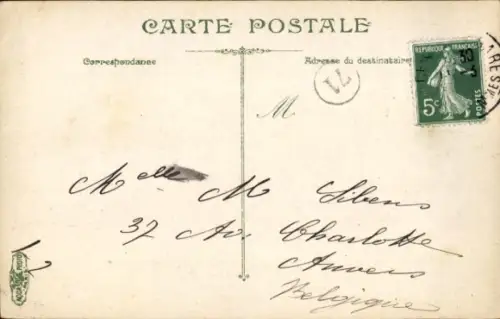 CARTE POSTALE
Correspondance
Adresse du destinataire
71
RÉPUBLIQUE FRANÇAISE
5c
POSTES
M
Melle M Sibens
37 Av. Charlotte
Anvers
Belgique